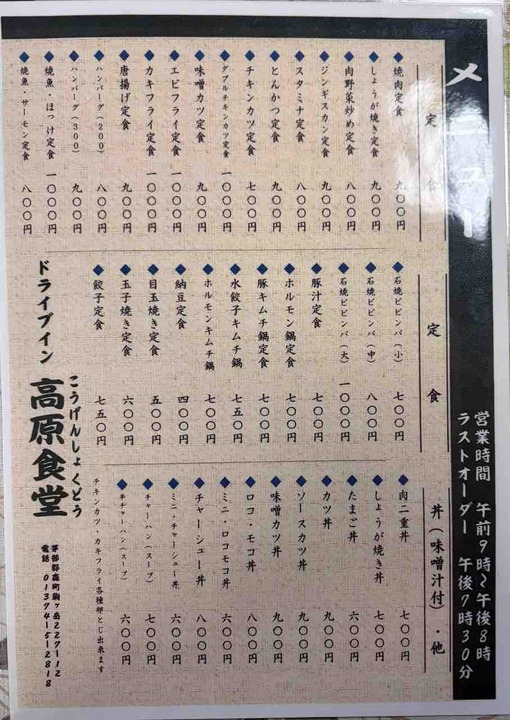 メニュー
営業時間 午前9時~午後8時
ラストオーダー 午後7時30分
定食
焼肉定食 九〇〇円
しょうが焼き定食 九〇〇円
肉野菜炒め定食 八〇〇円
ジンギスカン定食 九〇〇円
スタミナ定食 八〇〇円
とんかつ定食 九〇〇円
チキンカツ定食 七〇〇円
ダブルチキンカツ定食 一〇〇〇円
味噌カツ定食 九〇〇円
エビフライ定食 一〇〇〇円
カキフライ定食 一〇〇〇円
唐揚げ定食 九〇〇円
ハンバーグ(200) 八〇〇円
ハンバーグ(300) 九〇〇円
焼魚・ほっけ定食 一〇〇〇円
焼魚・サーモン定食 八〇〇円
定食
石焼ビビンバ(小) 七〇〇円
石焼ビビンバ(中) 八〇〇円
石焼ビビンバ(大) 一〇〇〇円
豚汁定食 七〇〇円
ホルモン鍋定食 七〇〇円
豚キムチ鍋定食 七〇〇円
水餃子キムチ鍋 七五〇円
ホルモンキムチ鍋 七〇〇円
納豆定食 四〇〇円
目玉焼き定食 五〇〇円
玉子焼き定食 六〇〇円
餃子定食 七五〇円
丼(味噌汁付)・他
肉二重丼 七〇〇円
しょうが焼き丼 七〇〇円
たまご丼 六〇〇円
カツ丼 九〇〇円
ソースカツ丼 九〇〇円
味噌カツ丼 九〇〇円
ロコ・モコ丼 八〇〇円
ミニ・ロコモコ丼 六〇〇円
チャーシュー丼 八〇〇円
ミニ・チャーシュー丼 六〇〇円
チャーハン(スープ) 七〇〇円
半チャーハン(スープ) 六〇〇円
チキンカツ・カキフライ各種卵とじ出来ます
こうげんしょくどう
ドライブイン 高原食堂
茅部郡森町駒ヶ岳227-12
電話 01374-5-2818